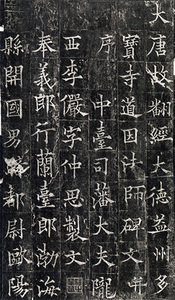 大唐故翻經大德益州多
寶寺道因法師碑文并
序 中臺司藩大夫隴
西李儼字仲思製文
奉義郎行蘭臺郎渤海
縣開國男都尉歐陽